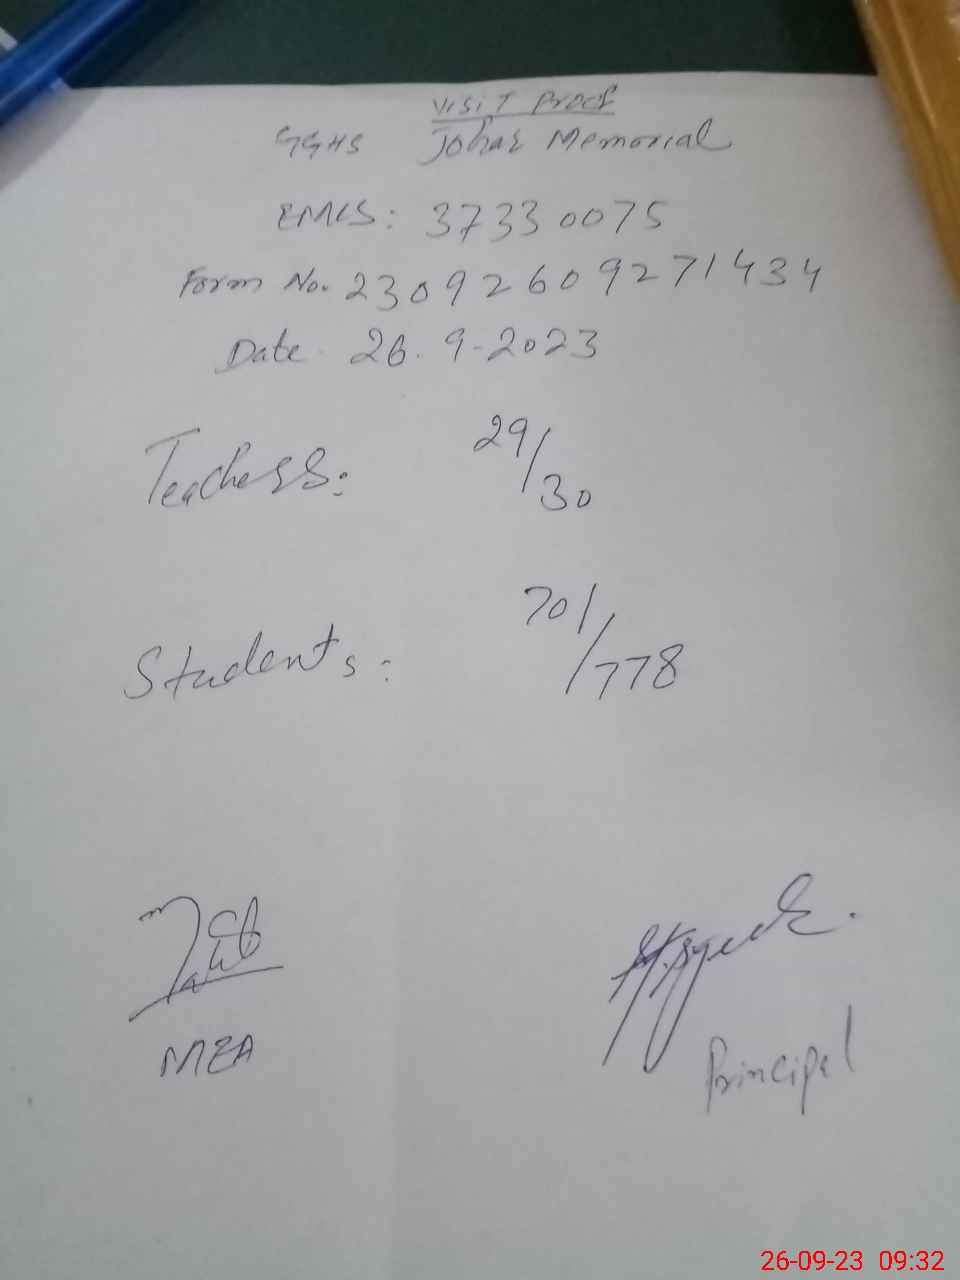 Visit Proof
GGHS Johar Memorial
EMIS: 37330075
Form No. 23092609271434
Date. 26.9-2023
Teachers: 29/30
Students: 701/778
MEA
Principal
26-09-23 09:32